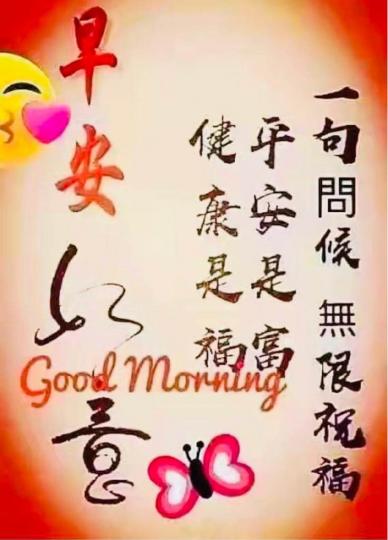 一句問候 無限祝福
平安是富
健康是福
早安如意
Good Morning